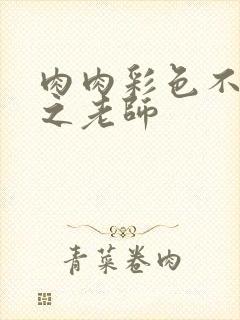 肉肉彩色不
之老师
青菜卷肉